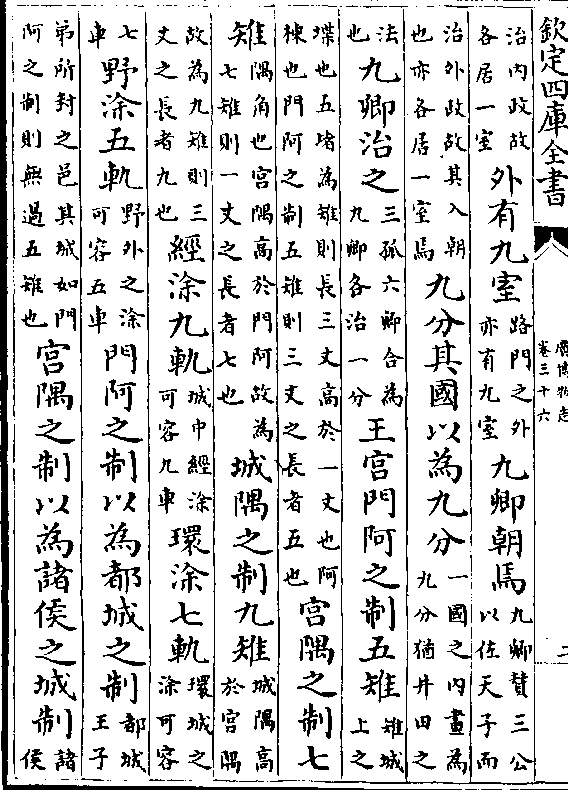 欽定四庫全書
廣博物志
卷三十六
二
治内政故各居一室外有九室路門之外亦有九室九卿朝焉九卿贊三公以佐天子而
治外政故其入朝也亦各居一室焉九分其國以為九分一國之内畫為九分猶井田之
法也九卿治之三孤六卿合為九卿各治一分王宫門阿之制五雉雉城上之
堞也五堵為雉則長三丈高於一丈也阿棟也門阿之制五雉則三丈之長者五也宫隅之制七
雉隅角也宫隅高於門阿故為七雉則一丈之長者七也城隅之制九雉城隅高於宫隅
故為九雉則三丈之長者九也經涂九軌城中經涂可容九車環涂七軌環城之涂可容
七車野涂五軌野外之涂可容五車門阿之制以為都城之制都城王子
弟所封之邑其城如門阿之制則無過五雉也宫隅之制以為諸侯之城制諸侯